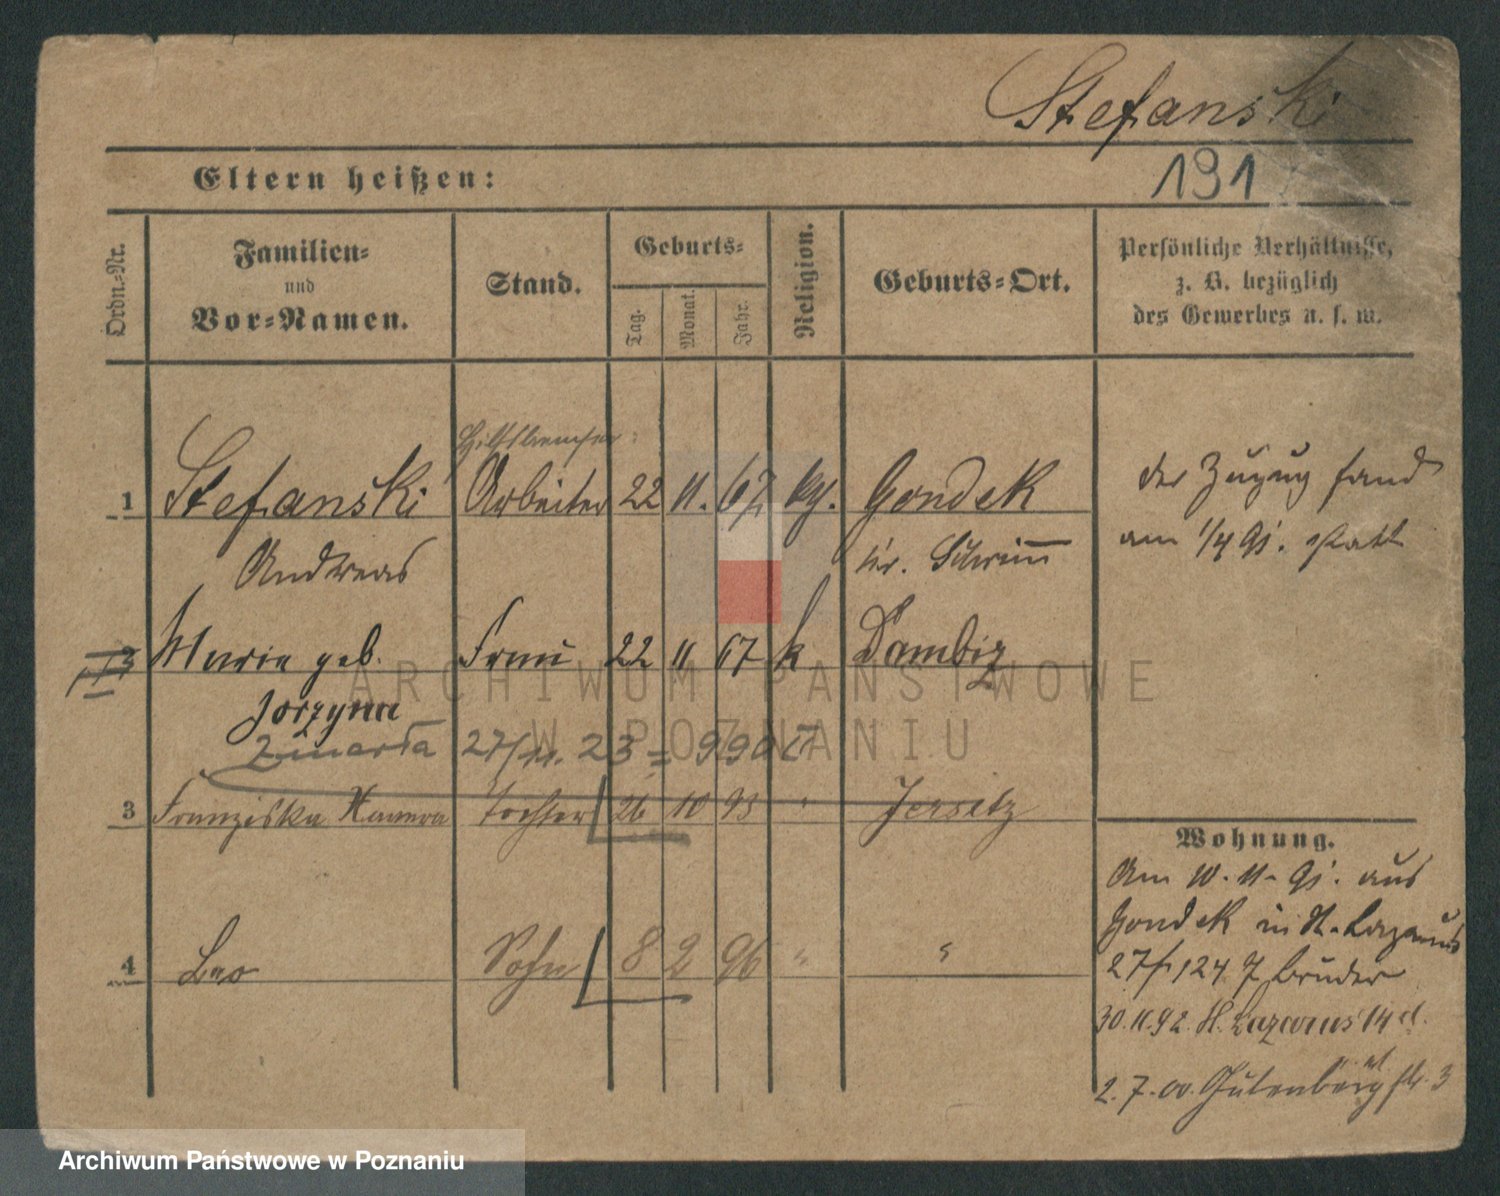 Stefanski
191
Eltern heißen:
Ordn.-Nr.
Familien-
und
Vor-Namen.
Stand.
Geburts-
Tag.
Monat.
Jahr.
Religion.
Geburts-Ort.
Persönliche Verhältnisse,
z. B. bezüglich
des Gewerbes u. s. w.
Hilfsbremser
1 Stefanski Arbeiter 22 11. 67 kg. Gondek
Andreas Kr. Schrimm
der Zuzug fand
am 1/4 91. statt
Maria geb. Frau 22 11 67 k Dambiz
Jorzyna
Zmarła 27/11. 23
3 Franziska Tochter 26 10 93 " Jersitz
4 Leo Sohn 8 2 96 " "
Wohnung.
Am 10.11.91. aus
Gondek in St. Lazarus
27/ 124 Bruder
30.11.92. St. Lazarus 14d.
2.7.00. Gutenbergstr. 3
ARCHIWUM PAŃSTWOWE
W POZNANIU
Archiwum Państwowe w Poznaniu